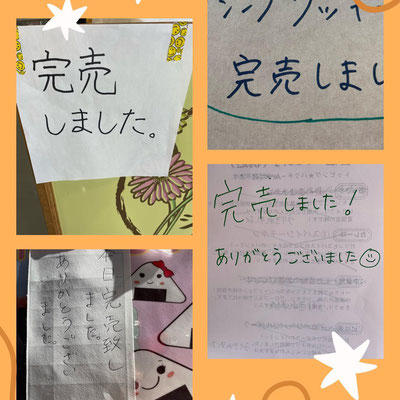 完売
しました。
完売しまし
完売しました!
ありがとうございました☺
本日完売致し
ました。
ありがとうござい
ました。